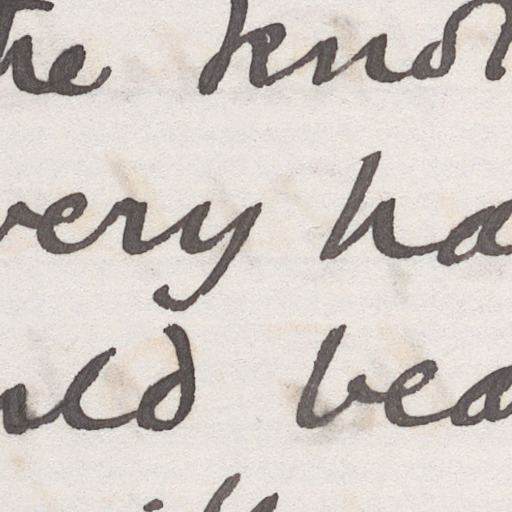 the knot
very ha
uld bea